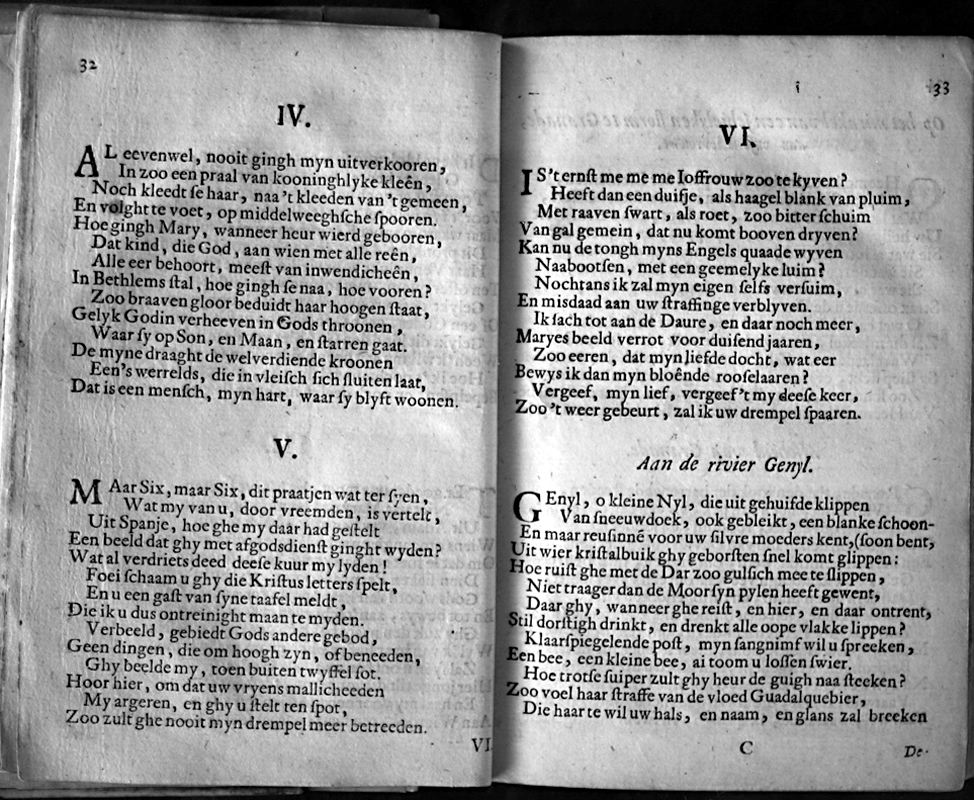 32
IV.
AL eevenwel, nooit gingh myn uitverkooren,
In zoo een praal van kooninghlyke kleên,
Noch kleedt ſe haar, naa 't kleeden van 't gemeen,
En volght te voet, op middelweeghſche ſpooren.
Hoe gingh Mary, wanneer heur wierd gebooren,
Dat kind, die God, aan wien met alle reên,
Alle eer behoort, meeſt van inwendicheên?
In Bethlems ſtal, hoe gingh ſe naa, hoe vooren?
Zoo braaven gloor beduidt haar hoogen ſtaat,
Gelyk Godin verheeven in Gods throonen,
Waar ſy op Son, en Maan, en ſtarren gaat.
De myne draaght de welverdiende kroonen
Een's werrelds, die in vleiſch ſich ſluiten laat,
Dat is een menſch, myn hart, waar ſy blyft woonen.
V.
MAar Six, maar Six, dit praatjen wat ter ſyen,
Wat my van u, door vreemden, is vertelt,
Uit Spanje, hoe ghe my daar had geſtelt
Een beeld dat ghy met afgodsdienſt ginght wyden?
Wat al verdriets deed deeſe kuur my lyden!
Foei ſchaam u ghy die Kriſtus letters ſpelt,
En u een gaſt van ſyne taafel meldt,
Die ik u dus ontreinight maan te myden.
Verbeeld, gebiedt Gods andere gebod,
Geen dingen, die om hoogh zyn, of beneeden,
Ghy beelde my, toen buiten twyffel ſot.
Hoor hier, om dat uw vryens mallicheeden
My argeren, en ghy u ſtelt ten ſpot,
Zoo zult ghe nooit myn drempel meer betreeden.
VI.
33
VI.
IS't ernſt me me me Ioffrouw zoo te kyven?
Heeft dan een duifje, als haagel blank van pluim,
Met raaven ſwart, als roet, zoo bitter ſchuim
Van gal gemein, dat nu komt booven dryven?
Kan nu de tongh myns Engels quaade wyven
Naabootſen, met een geemelyke luim?
Nochtans ik zal myn eigen ſelfs verſuim,
En misdaad aan uw ſtraffinge verblyven.
Ik ſach tot aan de Daure, en daar noch meer,
Maryes beeld verrot voor duiſend jaaren,
Zoo eeren, dat myn liefde docht, wat eer
Bewys ik dan myn bloênde rooſelaaren?
Vergeef, myn lief, vergeef 't my deeſe keer,
Zoo 't weer gebeurt, zal ik uw drempel ſpaaren.
Aan de rivier Genyl.
GEnyl, o kleine Nyl, die uit gehuifde klippen
Van ſneeuwdoek, ook gebleikt, een blanke ſchoon-
En maar reuſinnê voor uw ſilvre moeders kent, (ſoon bent,
Uit wier kriſtalbuik ghy geborſten ſnel komt glippen:
Hoe ruiſt ghe met de Dar zoo gulſich mee te ſlippen,
Niet traager dan de Moorſyn pylen heeft gewent,
Daar ghy, wanneer ghe reiſt, en hier, en daar ontrent,
Stil dorſtigh drinkt, en drenkt alle oope vlakke lippen?
Klaarſpiegelende poſt, myn ſangnimf wil u ſpreeken,
Een bee, een kleine bee, ai toom u loſſen ſwier.
Hoe trotſe ſuiper zult ghy heur de guigh naa ſteeken?
Zoo voel haar ſtraffe van de vloed Guadalquebier,
Die haar te wil uw hals, en naam, en glans zal breeken
C
De